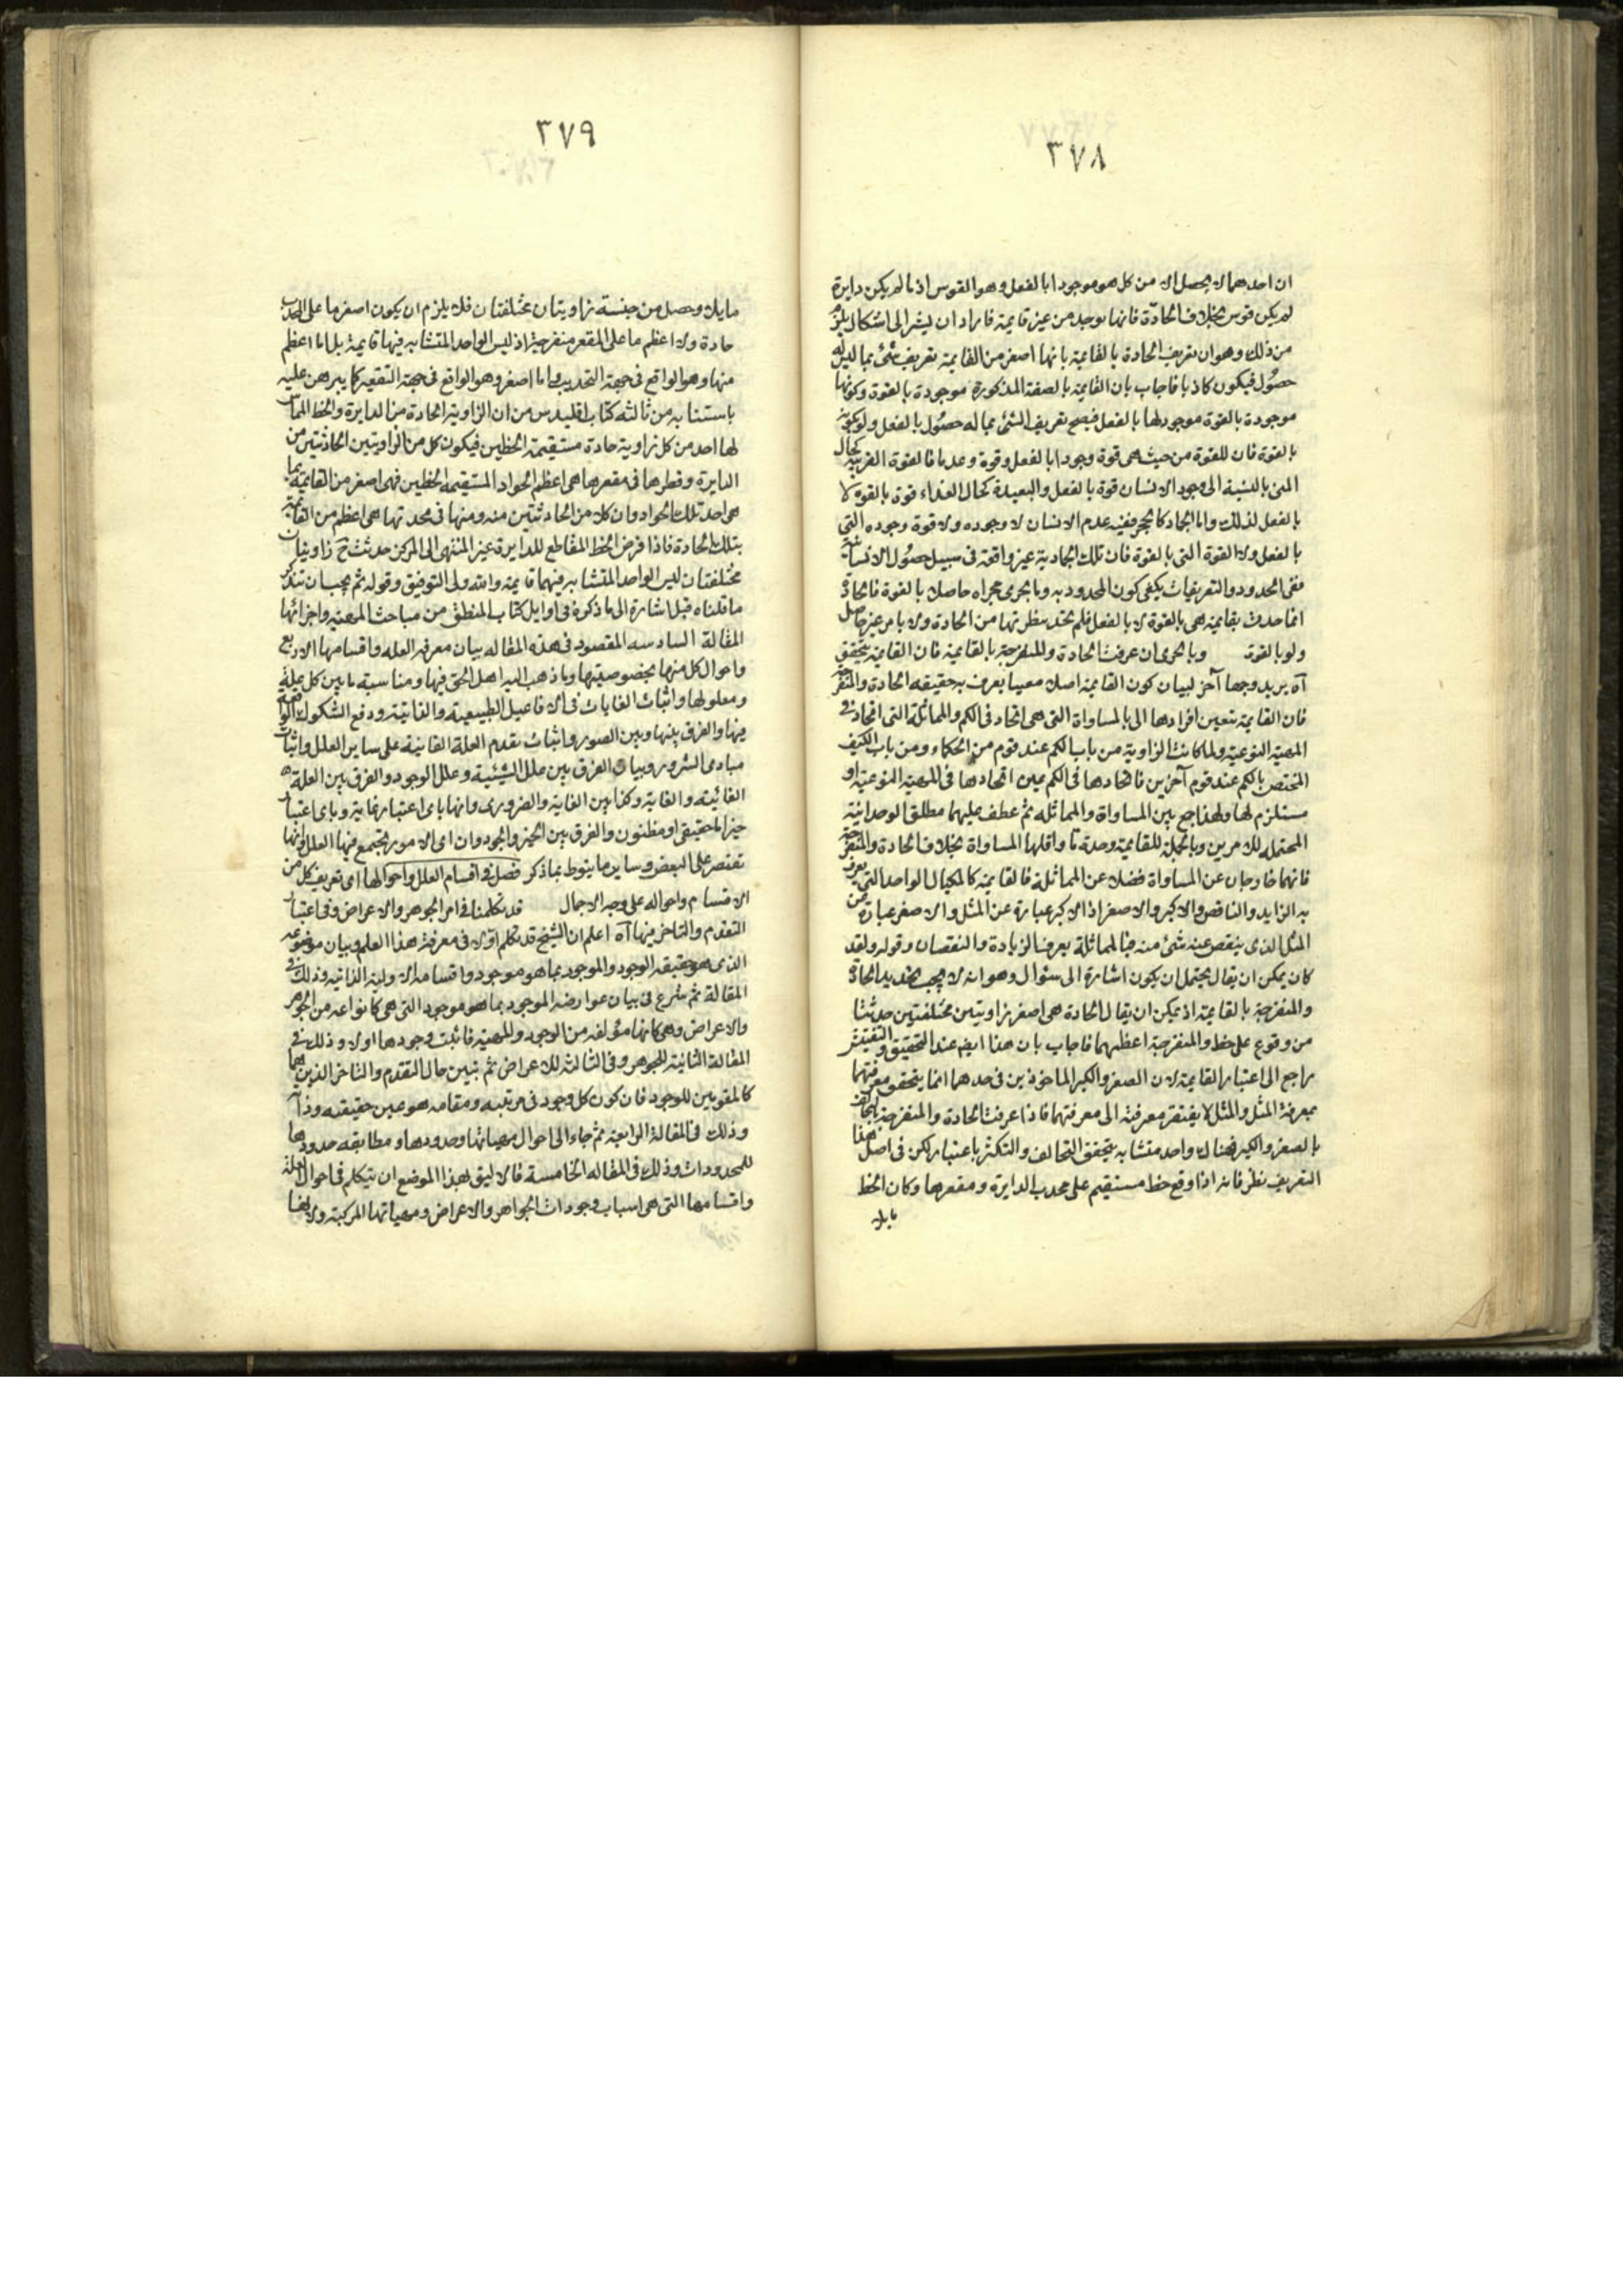 ٣٧٨
ان احدهما لا يحصل الا من كل هو موجود بالفعل وهو القوس اذ ما لم يكن دايرة
لم يكن قوس بخلاف الحادة فانها توجد من غير قايمة فاراد ان يشير الى اشكال يلزم
من ذلك وهو ان تعريف الحادة بالقايمة بانها اصغر من القايمة تعريف شئ بما ليس له
حصول فيكون كاذبا فاجاب بان القايمة بالصفة المذكورة موجودة بالقوة وكونها
موجودة بالقوة موجود لها بالفعل فيصح تعريف الشئ بما له حصول بالفعل ولو كونه
بالقوة فان للقوة من حيث هى قوة وجودا بالفعل وقوة وعدما فالقوة القريبة كحال
المنى بالنسبة الى وجود الانسان قوة بالفعل والبعيدة كحال الغذاء قوة بالقوة لا
بالفعل لذلك واما الجماد كالحجر ففيه عدم الانسان لا وجوده ولا قوة وجوده التى
بالفعل ولا القوة التى بالقوة فان تلك الجمادية غير واقعة فى سبيل حصول الانسانية
ففى الحدود والتعريفات يكفى كون المحدود به وما يجرى مجراه حاصلا بالقوة فالحادة
انما حدت بقايمة هى بالقوة لا بالفعل فلم تخذ بنظرتها من الحادة ولا بامر غير حاصل
ولو بالقوة وبالحرى ان عرفت الحادة والمنفرجة بالقايمة فان القايمة يتحقق
آه يريد وجها آخر لبيان كون القايمة اصلا معينا يعرف به حقيقة الحادة والمنفرجة
فان القايمة يتعين افرادها الى بالمساواة التى هى اتحاد فى الكم والمماثلة التى اتحاد فى
المهية النوعية ولما كانت الزاوية من باب الكم عند قوم من الحكماء ومن باب الكيف
المختص بالكم عند قوم آخرين فاتحادها فى الكم عين اتحادها فى المهية النوعية او
مستلزم لها ولهذا جمع بين المساواة والمماثلة ثم عطف عليهما مطلق الوحدانية
المحتملة للامرين وبالجملة للقايمة وحدة ما واقلها المساواة بخلاف الحادة والمنفرجة
فانهما خارجان عن المساواة فضلا عن المماثلة فالقايمة كالمكيال الواحد التى يعرف
به الزايد والناقص والاكبر والاصغر اذ الاكبر عبارة عن المثل والاصغر عبارة عن
المثل الذى ينقص عنه شئ منه فبالمماثلة يعرف الزيادة والنقصان وقوله ولقد
كان يمكن ان يقال يحتمل ان يكون اشارة الى سئوال وهو انه لا يجب تحديد الحادة
والمنفرجة بالقايمة اذ يمكن ان يقال الحادة هى اصغر زاويتين مختلفتين حدثتا
من وقوع خط على خط والمنفرجة اعظمهما فاجاب بان هذا ايضا عند التحقيق والتفتيش
راجع الى اعتبار القايمة لان الصغر والكبر الماخوذين فى حدهما انما يتحقق معرفتهما
بمعرفة المثل والمثل لا يفتقر معرفته الى معرفتهما فاذا عرفت الحادة والمنفرجة
بالصغر والكبر فهناك واحد متشابه يتحقق التخالف والتكثر باعتباره لكن فى اصل هذا
التعريف نظر فانه اذا وقع خط مستقيم على محدب الدايرة ومقعرها وكان الخط
مايلا
٣٧٩
مايلا وحصل من جنسه زاويتان مختلفتان فلا يلزم ان يكون اصغر ما على المحدب
حادة ولا اعظم ما على المقعر منفرجة اذ ليس الواحد المتشابه فيها قايمة بل اما اعظم
منها وهو الواقع فى جهة التحديب واما اصغر وهو الواقع فى جهة التقعير كما يبرهن عليه
باستنابه من ثالثه كتاب اقليدس من ان الزاوية الحادة من الدايرة والخط المماس
لها احد من كل زاوية حادة مستقيمة الخطين فيكون كل من الزاويتين الحادثتين من
الدايرة وقطرها فى مقعرها هى اعظم الحواد المستقيمة الخطين فهى اصغر من القايمة بما
هى احد تلك الحواد وان كلا من الحادثتين منه ومنها فى محدبها هى اعظم من القايمة
بتلك الحادة فاذا فرض الخط المقاطع للدايرة غير المنتهى الى المركز حدثت ح زاويتان
مختلفتان ليس الواحد المتشابه فيهما قايمة والله ولى التوفيق وقوله ثم يجب ان تتذكر
ما قلناه قبل اشارة الى ما ذكره فى اوايل كتاب المنطق من مباحث المهية واجزائها
المقالة السادسه المقصود فى هذه المقاله بيان معرفه العله واقسامها الاربع
واحوال كل منها بخصوصيتها وما ذهب اليه اهل الحق فيها ومناسبة ما بين كل علة
ومعلولها واثبات الغايات فى الافاعيل الطبيعية والغاتية ودفع الشكوك الواقعة
فيها والفرق بينها وبين الصور واثبات تقدم العلة الغائية على ساير العلل واثبات
مبادى الشرور وبيان الفرق بين علل الشيئية وعلل الوجود والفرق بين العلة
الغائيته والغاية وكذا بين الغاية والضرورى وانها باى اعتبار غاية وباى اعتبار
خير اما حقيقى او مظنون والفرق بين الخير والجود وان اى الامور يجتمع فيها العلل وانها
تقتصر على البعض وساير ما ينوط بما ذكر فصل فى اقسام العلل واحوالها اى تعريف كل من
الاقسام واحواله على وجه الاجمال قد تكلمنا فى امر الجوهر والاعراض وفى اعتبار
التقدم والتاخر فيها آه اعلم ان الشيخ قد تكلم اولا فى معرفة هذا العلم وبيان موضوعه
الذى هو حقيقه الوجود والموجود بما هو موجود واقسامه الاولية الذاتيه وذلك فى
المقالة ثم شرع فى بيان عوارضه الموجود بما هو موجود التى هى كانواعه من الجوهر
والاعراض وهى كانها مؤلفه من الوجود والمهية فاثبت وجودها اولا وذلك فى
المقالة الثانية للجوهر وفى الثالثه للاعراض ثم بتبين حال التقدم والتاخر الذين هما
كالمقومين للوجود فان كون كل وجود فى مرتبه ومقامه هو عين حقيقيه وذاته
وذلك فى المقالة الرابعة ثم جاء الى احوال مهياتها وحدودها ومطابقه حدودها
للمحدودات وذلك فى المقاله الخامسة فالاليق بهذا الموضع ان يتكلم فى احوال العلة
واقسامها التى هى اسباب وجودات الجواهر والاعراض ومهياتها المركبة ولانها